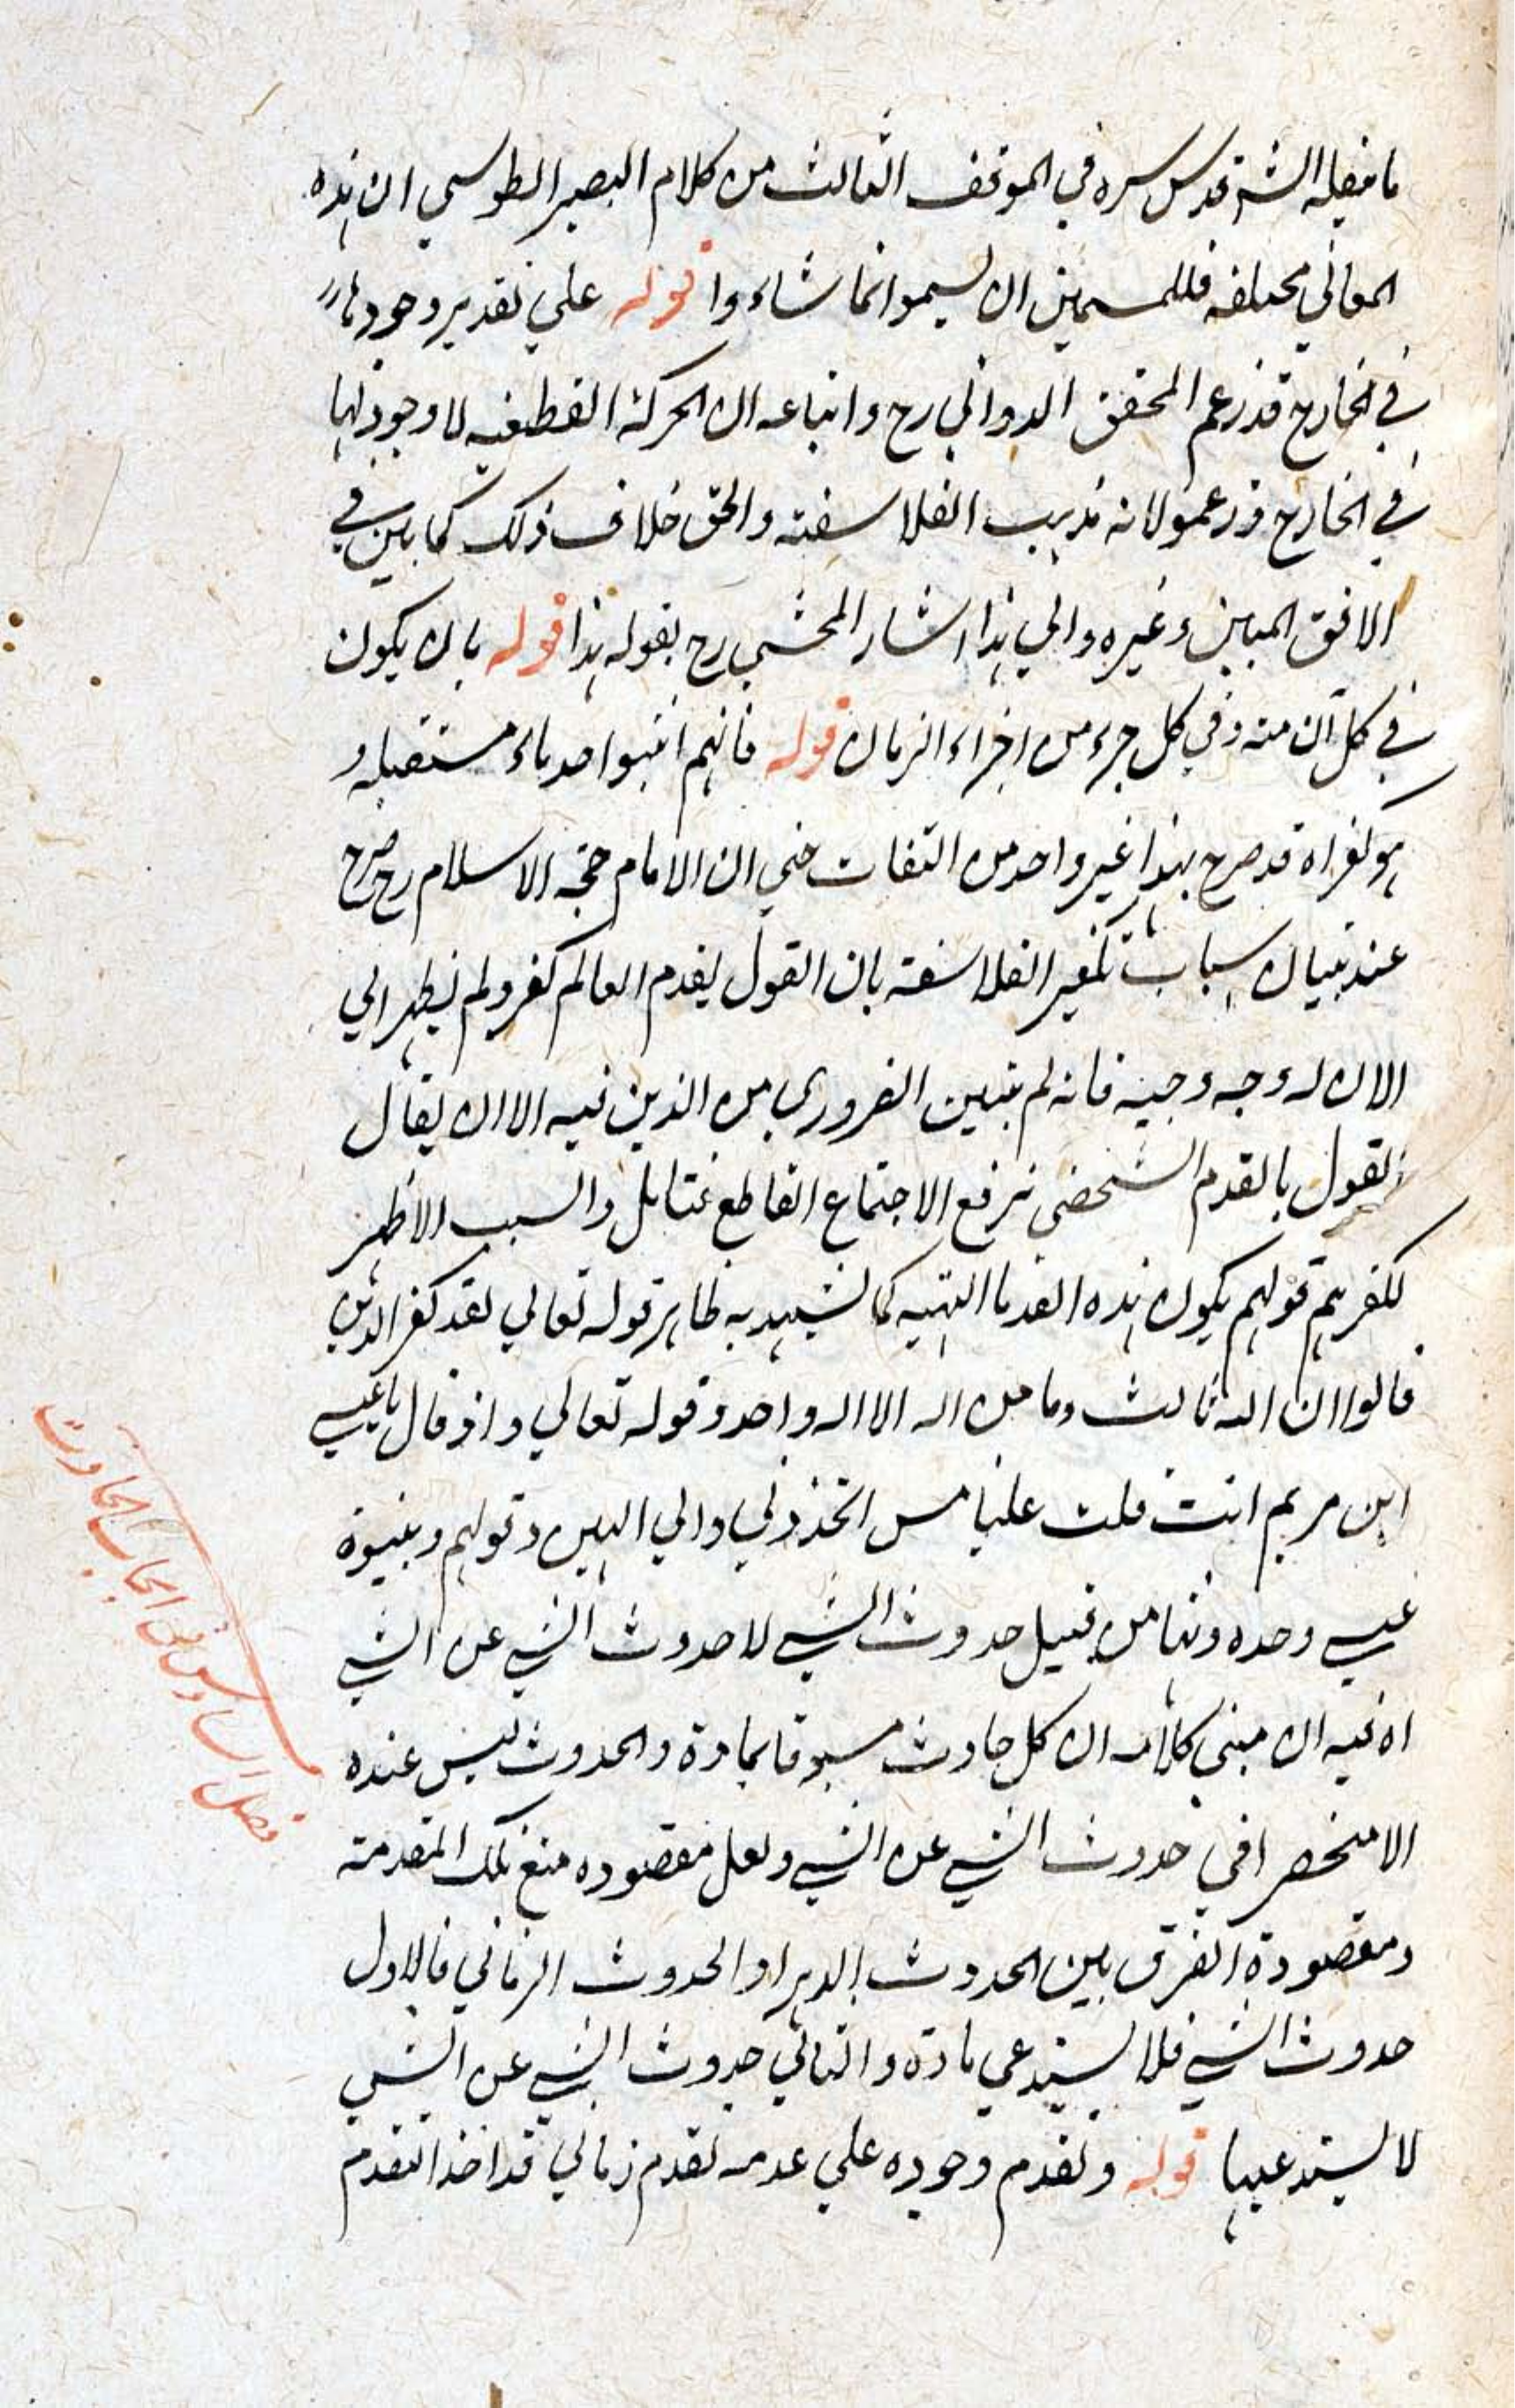 ما فصله الش قدس سره في الموقف الثالث من كلام البصير الطوسي ان هذه
المعاني مختلفة فللمسمين ان يسموا نما شاءوا قوله علي تقدير وجودها
في الخارج قد زعم المحقق الدواني رح واتباعه ان الحركة القطعيه لا وجود لها
في الخارج وزعموا انه مذهب الفلاسفة والحق خلاف ذلك كما بين في
الافق المبين وغيره والي هذا اشار المحشي رح بقوله هذا قوله بان يكون
في كل آن منه وفي كل جزء من اجزاء الزمان قوله فانهم اثبتوا قدماء مستقله و
هو كفر اه قد صرح بهذا غير واحد من الثقات حتي ان الامام حجة الاسلام رح صرح
عند بيان اسباب تكفير الفلاسفة بان القول بقدم العالم كفر ولم يظهر الي
الان له وجه وجيه فانه لم يتبين الضروري من الدين فيه الا ان يقال
القول بالقدم الشخصي يرفع الاجتماع القاطع فتامل والسبب الاظهر
لكفرهم قولهم بكون هذه القدما الهيه كما يشهد به ظاهر قوله تعالي لقد كفر الذين
قالوا ان الله ثالث وما من اله الا اله واحد وقوله تعالي واذ قال يا عيسي
ابن مريم انت قلت اتخذوني وامي الهين وقولهم وبنبوة
عيسي وحده وهذا من قبيل حدوث الشي لا حدوث الشي عن الشي
اه فيه ان مبني كلامه ان كل حادث مسبوقا بمادة والحدوث ليس عنده
الا منحصرا في حدوث الشي عن الشي ولعل مقصوده منع تلك المقدمة
ومقصوده الفرق بين الحدوث الدهر والحدوث الزماني فالاول
حدوث الشي فلا يستدعي مادة والثاني حدوث الشي عن الشي
لا يستدعيها قوله وتقدم وجوده علي عدمه تقدم زماني قد اخذ التقدم
فصل السادس في الحادث